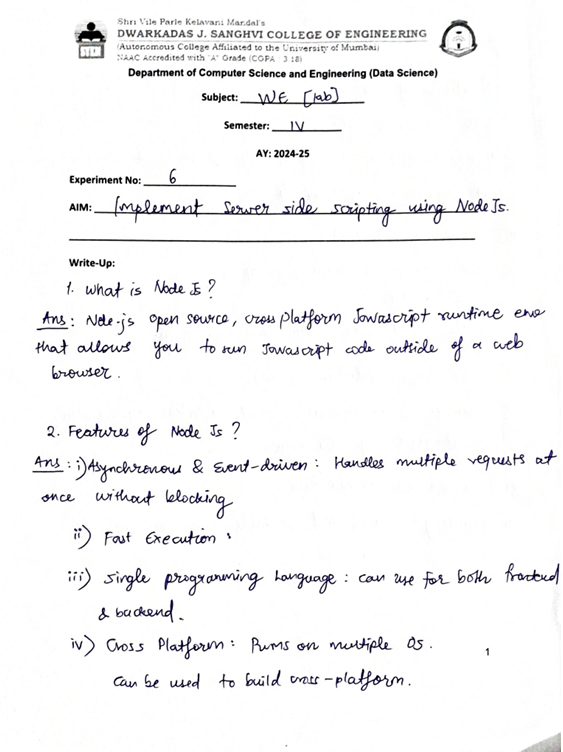 Shri Vile Parle Kelavani Mandal's
DWARKADAS J. SANGHVI COLLEGE OF ENGINEERING
(Autonomous College Affiliated to the University of Mumbai)
NAAC Accredited with "A" Grade (CGPA : 3.18)
Department of Computer Science and Engineering (Data Science)
Subject: WE [lab]
Semester: IV
AY: 2024-25
Experiment No: 6
AIM: Implement Server side scripting using Node Js.
Write-Up:
1. What is Node Js?
Ans: Node-js open source, cross platform Javascript runtime env
that allows you to run Javascript code outside of a web
browser.
2. Features of Node Js?
Ans: i) Asynchronous & Event-driven: Handles multiple requests at
once without blocking
ii) Fast Execution:
iii) Single programming Language: can use for both
& backend.
iv) Cross Platform: Runs on multiple OS.
1
Can be used to build cross-platform.